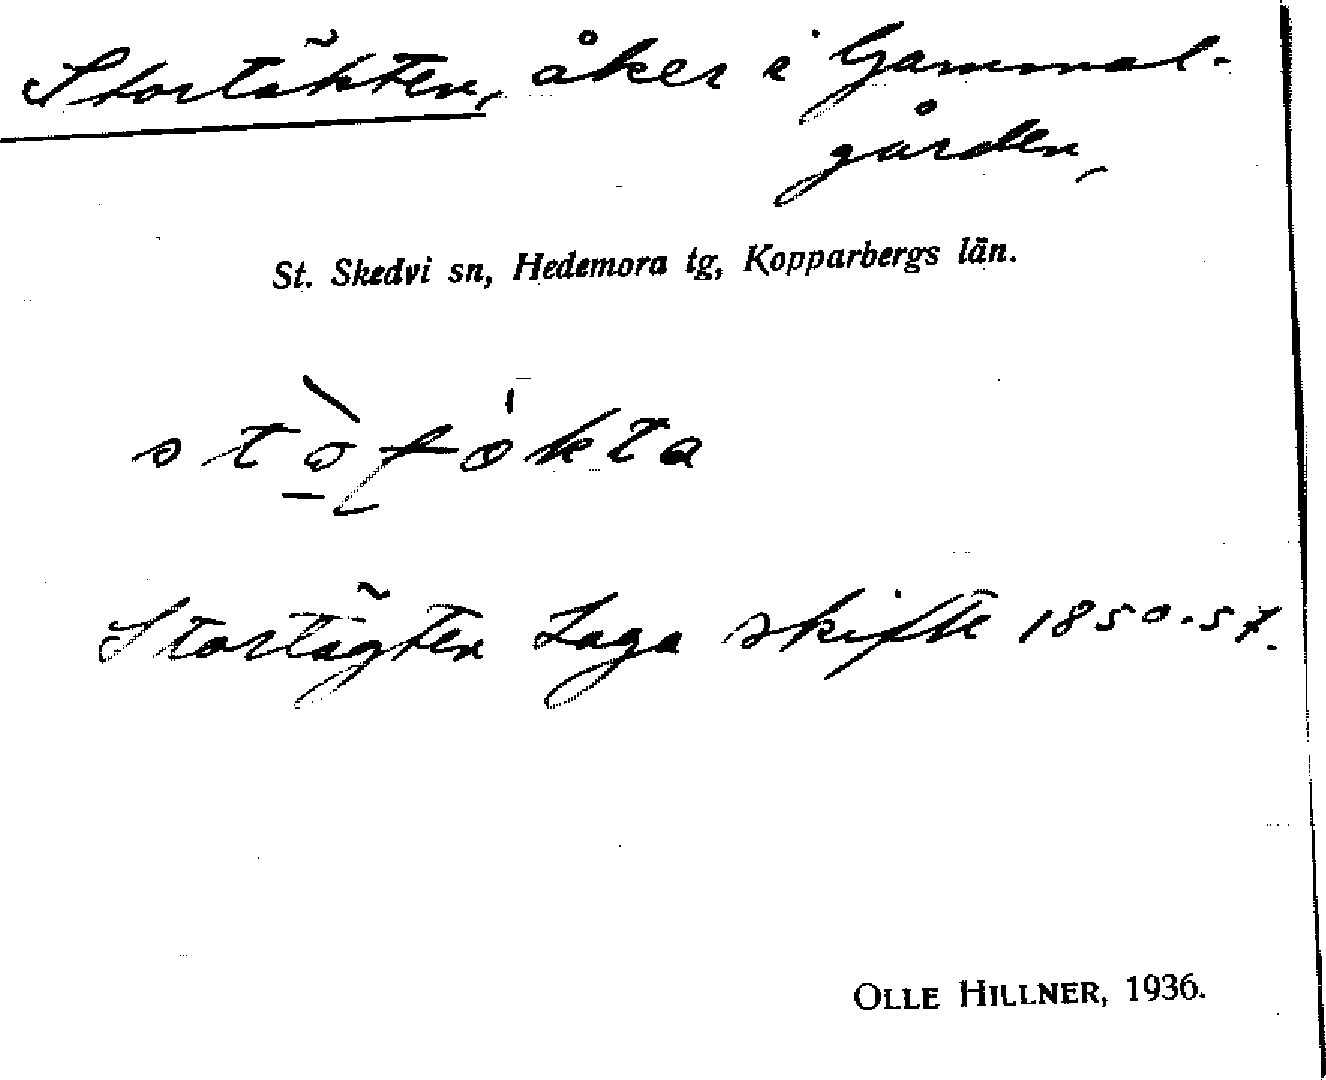 Stortäkten, åker i Gammal-
gården,
St. Skedvi sn, Hedemora tg, Kopparbergs län.
Stortägten Laga skifte 1850-57.
OLLE HILLNER, 1936.